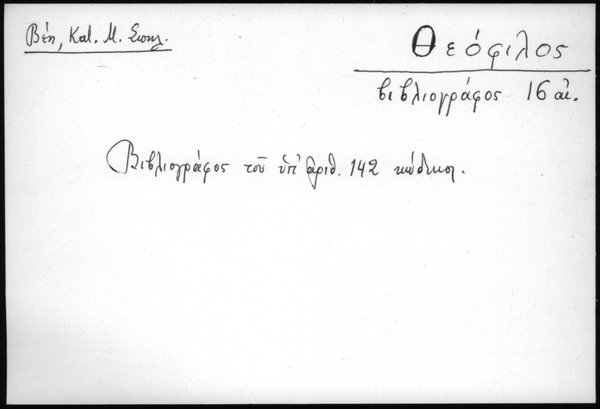 Βέη, Κατ. Μ.
Θεόφιλος
βιβλιογράφος 16 αἰ.
Βιβλιογράφος τοῦ ὑπ' ἀριθ. 142 κώδικος.